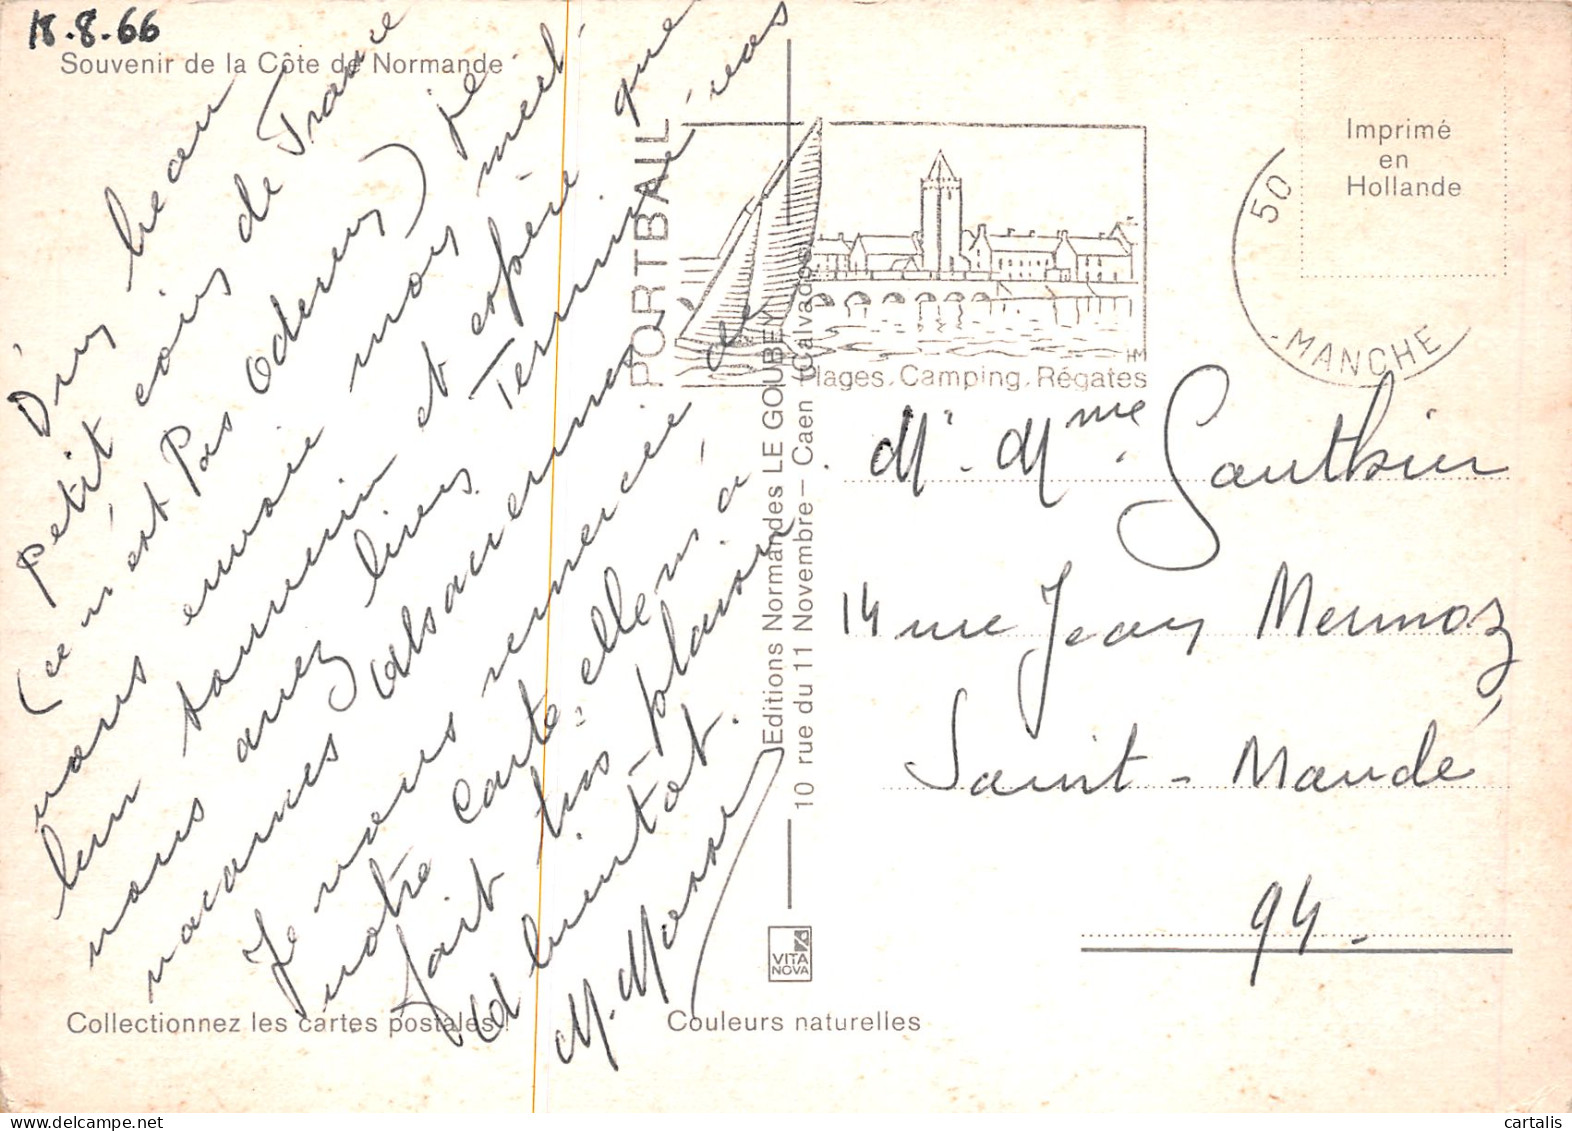 18.8.66
Souvenir de la Côte de Normande
D'un beau
petit coin de France
(ce n'est pas Oderen) je
vous envoie mon meil-
leur souvenir et espère que
vous avez bien terminé vos
vacances alsaciennes.
Je vous remercie de
votre carte, elle m'a
fait très plaisir
A bientôt.
M.
Collectionnez les cartes postales!
Couleurs naturelles
VITA
NOVA
Editions Normandes LE GOUBEY
10 rue du 11 Novembre – Caen (Calvados
PORTBAIL
Plages. Camping. Régates
HM
50
- MANCHE
Imprimé
en
Hollande
Mr. Mme. Gauthier
14 rue Jean Mermoz
Saint-Mandé
94.
cartalis